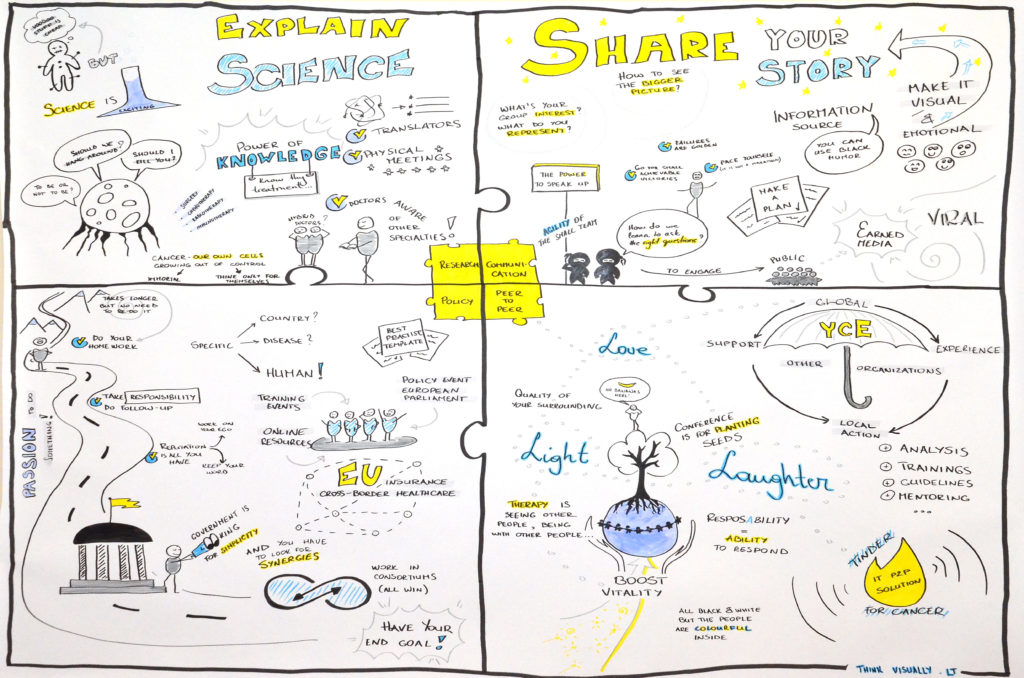 BUT
SCIENCE IS
EXCITING
EXPLAIN
SCIENCE
SHOULD WE
HANG AROUND?
SHOULD I
KILL YOU?
TO BE OR
NOT TO BE?
SURGERY
CHEMOTHERAPY
RADIOTHERAPY
IMMUNOTHERAPY
CANCER - OUR OWN CELLS
GROWING OUT OF CONTROL
IMMORTAL
THINK ONLY FOR
THEMSELVES
POWER OF
KNOWLEDGE
Know thy
treatment...
TRANSLATORS
PHYSICAL
MEETINGS
DOCTORS AWARE
OF
OTHER
SPECIALTIES!
HYBRID
DOCTORS
SHARE YOUR
STORY
HOW TO SEE
THE BIGGER
PICTURE?
WHAT'S YOUR
GROUP INTEREST?
WHAT DO YOU
REPRESENT?
MAKE IT
VISUAL
&
EMOTIONAL
INFORMATION
SOURCE
YOU CAN
USE BLACK
HUMOR
FAILURES
ARE GOLDEN
GO FOR SMALL
ACHIEVABLE
VICTORIES
PACE YOURSELF
(IT IS NOT A MARATHON)
THE POWER
TO SPEAK UP
AGILITY OF
THE SMALL TEAM
How do we
learn to ask
the right questions?
MAKE
A
PLAN
TO ENGAGE
PUBLIC
EARNED
MEDIA
VIRAL
RESEARCH
COMMUNI-
CATION
POLICY
PEER
TO
PEER
TAKES LONGER
BUT NO NEED
TO RE-DO IT
DO YOUR
HOMEWORK
TAKE RESPONSIBILITY
DO FOLLOW-UP
REPUTATION
IS ALL YOU
HAVE
WORK ON
YOUR EGO
KEEP YOUR
WORD
PASSION TO DO
SOMETHING!
SPECIFIC
COUNTRY?
DISEASE?
HUMAN!
BEST
PRACTISE
TEMPLATE
TRAINING
EVENTS
ONLINE
RESOURCES
POLICY EVENT
EUROPEAN
PARLIAMENT
EU INSURANCE
CROSS-BORDER HEALTHCARE
GOVERNMENT IS
LOOKING
FOR SIMPLICITY
AND YOU HAVE
TO LOOK FOR
SYNERGIES
WORK IN
CONSORTIUMS
(ALL WIN)
HAVE YOUR
END GOAL!
Love
Light
Laughter
QUALITY OF
YOUR SURROUNDING
CONFERENCE
IS FOR PLANTING
SEEDS
THERAPY IS
SEEING OTHER
PEOPLE, BEING
WITH OTHER PEOPLE...
RESPOSABILITY
=
ABILITY
TO RESPOND
BOOST
VITALITY
ALL BLACK & WHITE
BUT THE PEOPLE
ARE COLOURFUL
INSIDE
GLOBAL
YCE
SUPPORT
EXPERIENCE
OTHER
ORGANIZATIONS
LOCAL
ACTION
ANALYSIS
TRAININGS
GUIDELINES
MENTORING
...
TINDER
IT P2P
SOLUTION
FOR CANCER
THINK VISUALLY . LT